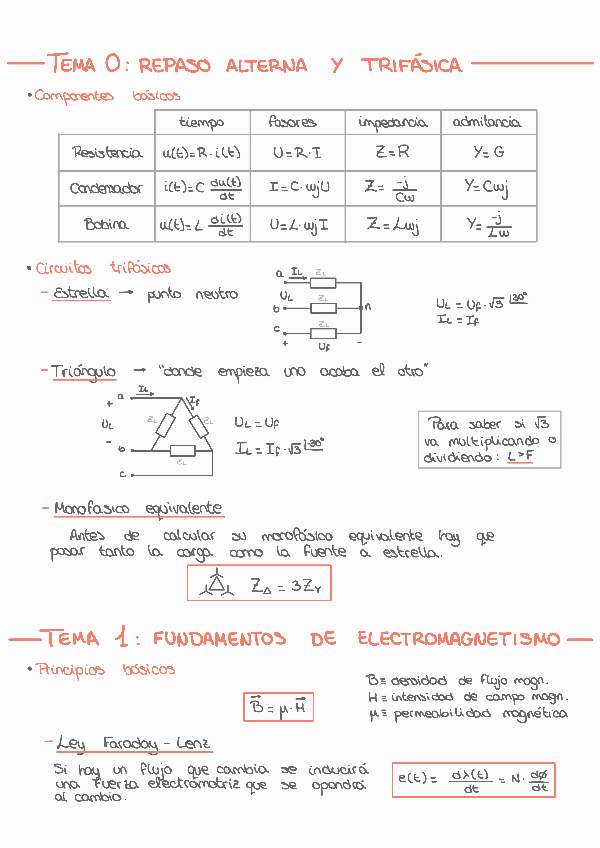 TEMA 0: REPASO ALTERNA Y TRIFÁSICA
• Componentes básicos
tiempo fasores impedancia admitancia
Resistencia u(t)=R·i(t) U=R·I Z=R Y=G
Condensador i(t)=C du(t)/dt I=C·wjU Z= -j/Cw Y=Cwj
Bobina u(t)=L di(t)/dt U=L·wjI Z=Lwj Y= -j/Lw
• Circuitos trifásicos
- Estrella → punto neutro
a IL ZL
UL
b ZL n
c ZL
+ Uf -
UL = Uf·√3 |30°
IL = If
- Triángulo → "donde empieza uno acaba el otro"
a IL
+ If
UL ZL ZL
- b
ZL
c
UL = Uf
IL = If·√3 |-30°
Para saber si √3
va multiplicando o
dividiendo: L>F
- Monofasico equivalente
Antes de calcular su monofásico equivalente hay que
pasar tanto la carga como la fuente a estrella.
Z△ = 3ZY
TEMA 1: FUNDAMENTOS DE ELECTROMAGNETISMO
• Principios básicos
B≡ densidad de flujo magn.
H≡ intensidad de campo magn.
μ≡ permeabilidad magnética
B⃗ = μ·H⃗
- Ley Faraday - Lenz
Si hay un flujo que cambia se inducirá
una fuerza electromotriz que se opondrá
al cambio.
e(t) = dλ(t)/dt = N·dφ/dt